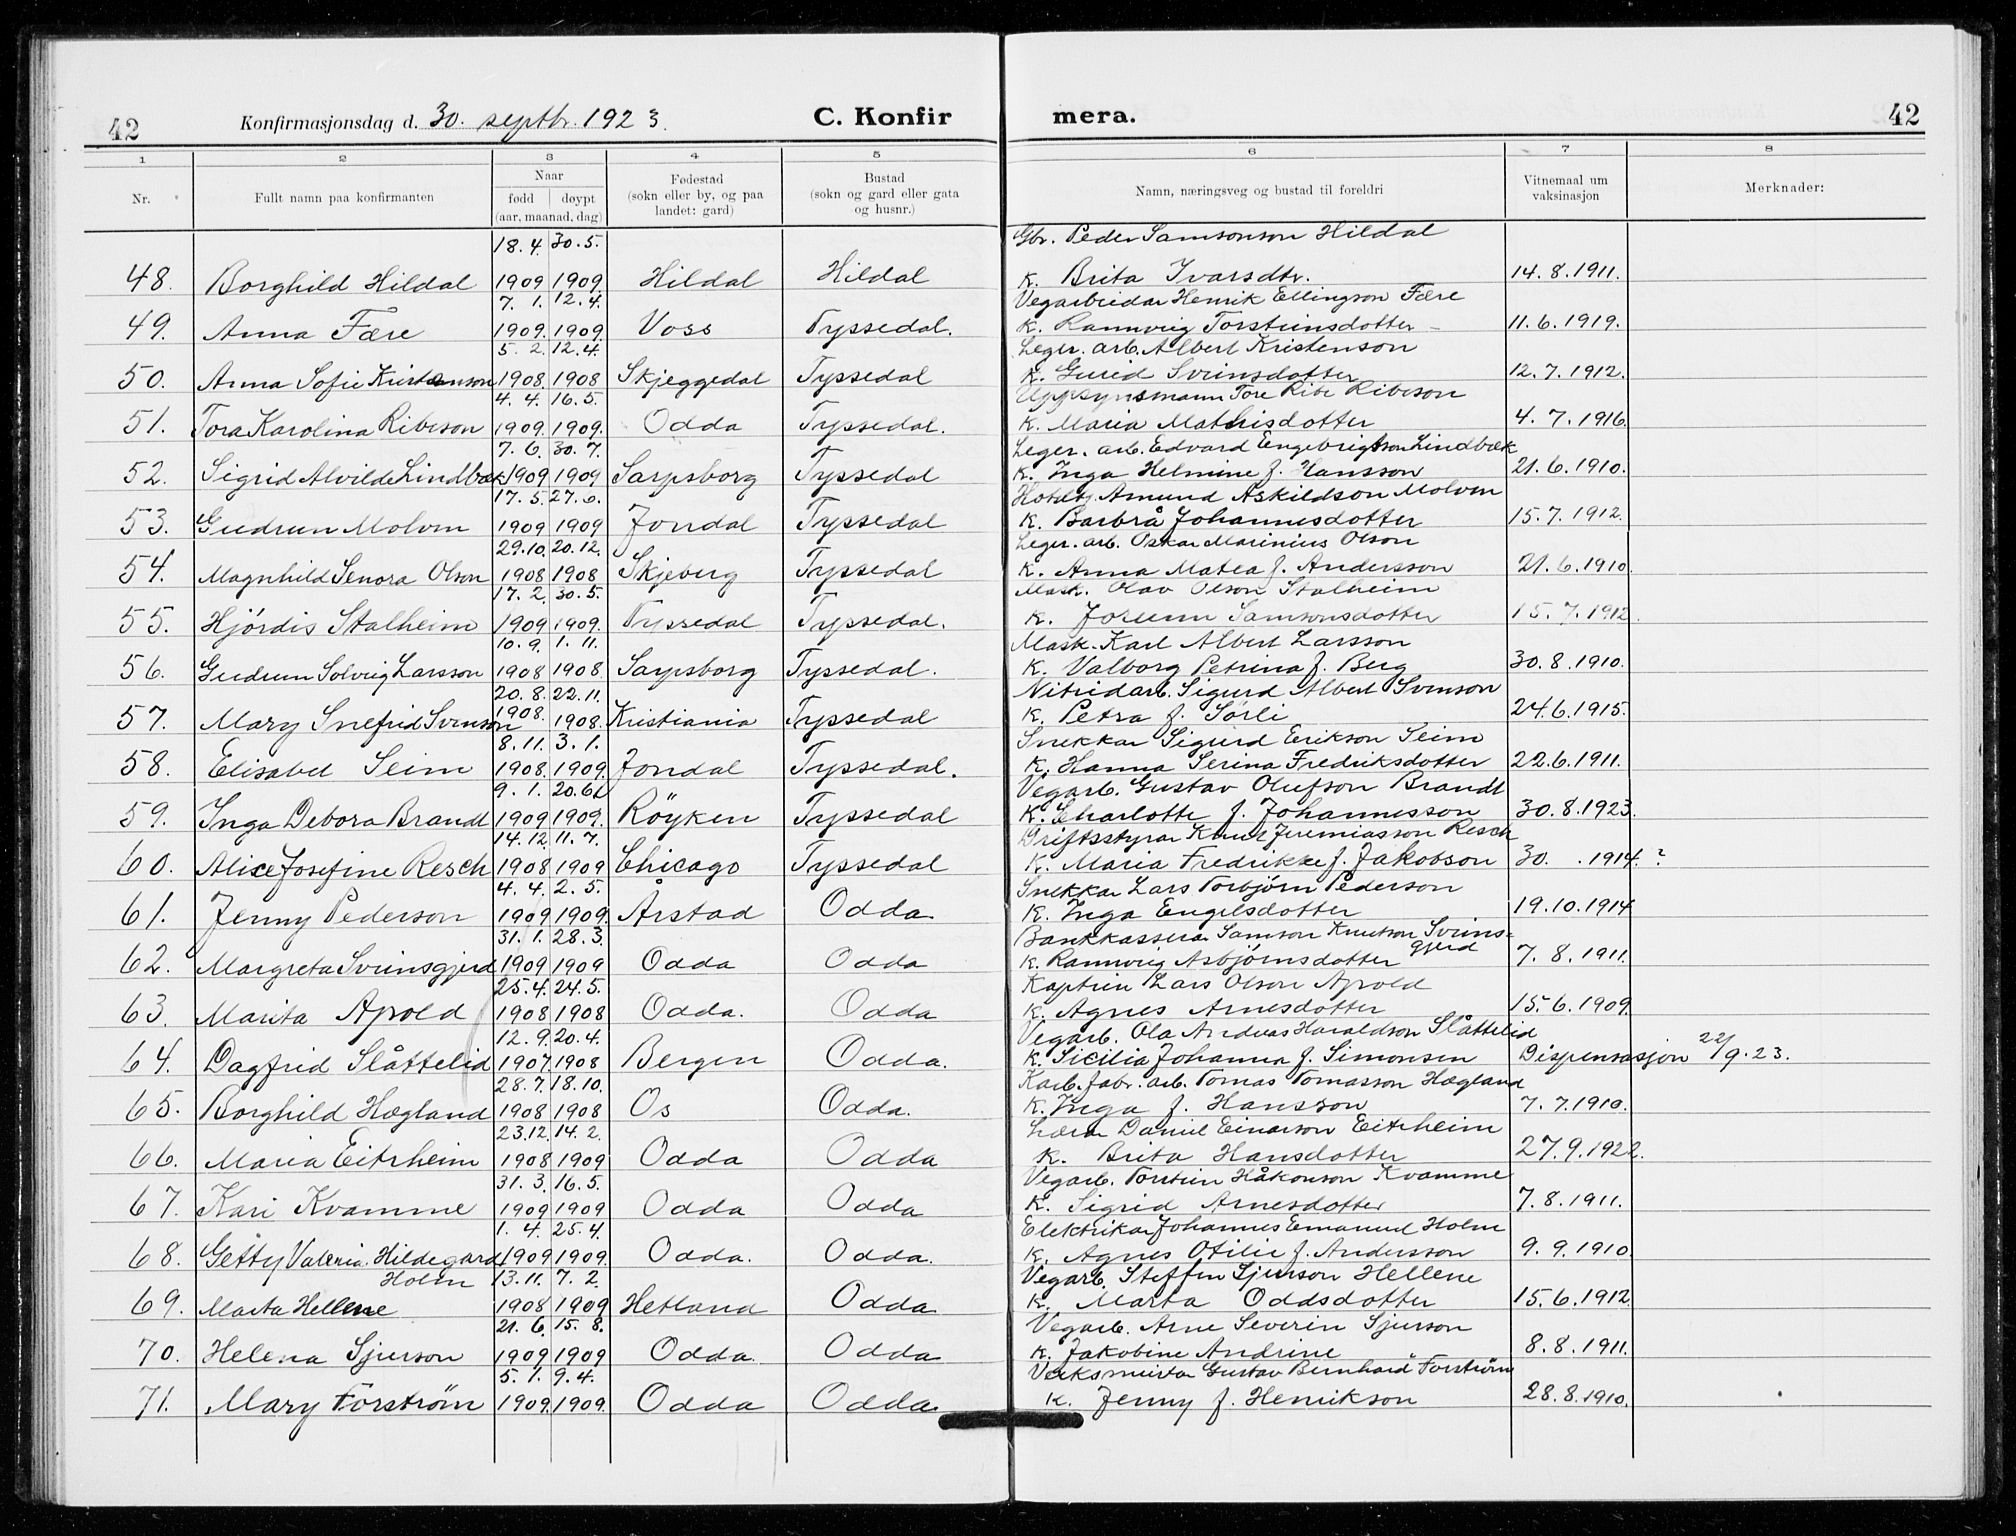 42 Konfirmasjonsdag d. 30. septbr. 1923. C. Konfir mera. 42
1 2 3 4 5 6 7 8
Nr. Fullt namn paa konfirmanten Naar fødd døypt (aar, maanad, dag) Fødestad (sokn eller by, og paa landet: gard) Bustad (sokn og gard eller gata og husnr.) Namn, næringsveg og bustad til foreldri Vitnemaal um vaksinasjon Merknader:
18.4. 30.5. Gbr. Peder Samsonson Hildal
48. Borghild Hildal 1909 1909 Hildal Hildal K. Brita Ivarsdtr. 14.8.1911.
7. 1. 12.4. Vegarbeidar Henrik Ellingson Fære
49. Anna Fære 1909. 1909. Voss Tyssedal. K. Rannveig Torsteinsdotter 11.6.1919.
5. 2. 12.4. Leger. arb. Albert Kristenson
50. Anna Sofie Kristenson 1908. 1908 Skjeggedal Tyssedal K. Gurid Sveinsdotter 12.7.1912.
4. 4. 16.5. Uppsynsmann Tore Ribe Ribeson
51. Tora Karolina Ribeson 1909. 1909. Odda Tyssedal. K. Maria Mathisdotter 4.7.1916.
7. 6. 30.7. Leger. arb. Edvard Engebrigtson Lindbæk
52. Sigrid Alvilde Lindbæk 1909 1909 Sarpsborg Tyssedal K. Inga Helmine f. Hansson 21.6.1910.
17.5. 27.6. Amund Askildson Molven
53. Gudrun Molven 1909 1909 Jondal Tyssedal K. Barbrå Johannesdotter 15.7.1912.
29.10. 20.12. Leger. arb. Oskar Marinius Olson
54. Magnhild Senora Olson 1908 1908 Skjeberg Tyssedal K. Anna Matea f. Andersson 21.6.1910.
17. 2. 30.5. Mask. Olav Olson Stalheim
55. Hjördis Stalheim 1909 1909. Tyssedal Tyssedal. K. Jorunn Samsonsdotter 15.7.1912.
10. 9. 1. 11. Mask. Karl Albert Larsson
56. Gudrun Solveig Larsson 1908 1908. Sarpsborg Tyssedal. K. Valborg Petrina f. Berg 30.8.1910.
20. 8. 22.11. Nitridarb. Sigurd Albert Svenson
57. Mary Snefrid Svenson 1908. 1908. Kristiania Tyssedal K. Petra f. Sørli 24.6.1915.
8.11. 3.1. Snekkar Sigurd Erikson Seim
58. Elisabet Seim 1908. 1909. Jondal Tyssedal. K. Hanna Serina Fredriksdotter 22.6.1911.
9. 1. 20.6. Vegarb. Gustav Olufson Brandt
59. Inga Debora Brandt 1909 1909. Röyken Tyssedal K. Charlotte f. Johannesson 30.8.1923.
14.12. 11.7. Driftsstyrar Knut Jeremiasson Resch
60. Alice Josefine Resch 1908 1909 Chicago Tyssedal K. Maria Fredrikke f. Jakobson 30. .1914. ?
4. 4. 2. 5. Snekkar Lars Torbjørn Pederson
61. Jenny Pederson 1909 1909. Årstad Odda. K. Inga Engelsdotter 19.10.1914
31. 1. 28.3. Bankkasserar Samson Knutson Sveins=
62. Margreta Sveinsgjerd 1909 1909 Odda Odda K. Rannveig Asbjørnsdotter gjerd 7.8.1911.
25.4. 24.5. Kaptein Lars Olson Apold
63. Marita Apold 1908 1908 Odda. Odda K. Agnes Arnesdotter 15.6.1909.
12. 9. 20.4. Vegarb. Ola Andreas Haraldson Slåttelid
64. Dagfrid Slåttelid 1907. 1908 Bergen Odda. K. Sicilia Johanna f. Simonsen Dispensasjon 22/9.23.
28.7. 18.10. Karb. fabr. arb. Tomas Tomasson Hægland
65. Borghild Hægland 1908 1908 Os Odda. K. Inga f. Hansson 7.7.1910.
23.12. 14. 2. Lærar Daniel Einarson Eitrheim
66. Maria Eitrheim 1908 1909 Odda Odda K. Brita Hansdotter 27.9.1922.
31. 3. 16.5. Vegarb. Torstein Håkonson Kvamme
67. Kari Kvamme 1909 1909 Odda Odda K. Sigrid Arnesdotter 7.8.1911.
1. 4. 25.4. Elektrikar Johannes Emanuel Holm
68. Getty Valeria Hildegard 1909. 1909. Odda. Odda. K. Agnes Otilie f. Andersson 9.9.1910.
Holm 13.11. 7. 2. Vegarb. Steffen Sjurson Hellene
69. Marta Hellene 1908 1909 Hetland Odda. K. Marta Oddsdotter 15.6.1912.
21. 6. 15. 8. Vegarb. Arne Severin Sjurson
70. Helena Sjurson 1909 1909 Odda. Odda K. Jakobine Andrine 8.8.1911.
5. 1. 9.4. Verksmeistar Gustav Bernhard Forstrøm
71. Mary Forstrøm 1909. 1909. Odda Odda. K. Jenny f. Henrikson 28.8.1910.